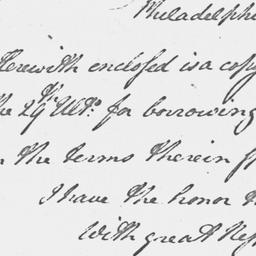 Philadelphi
Herewith enclosed is a copy
the 29th Ulto. for borrowing
the terms therein sp
I have the honor t
With great Resp